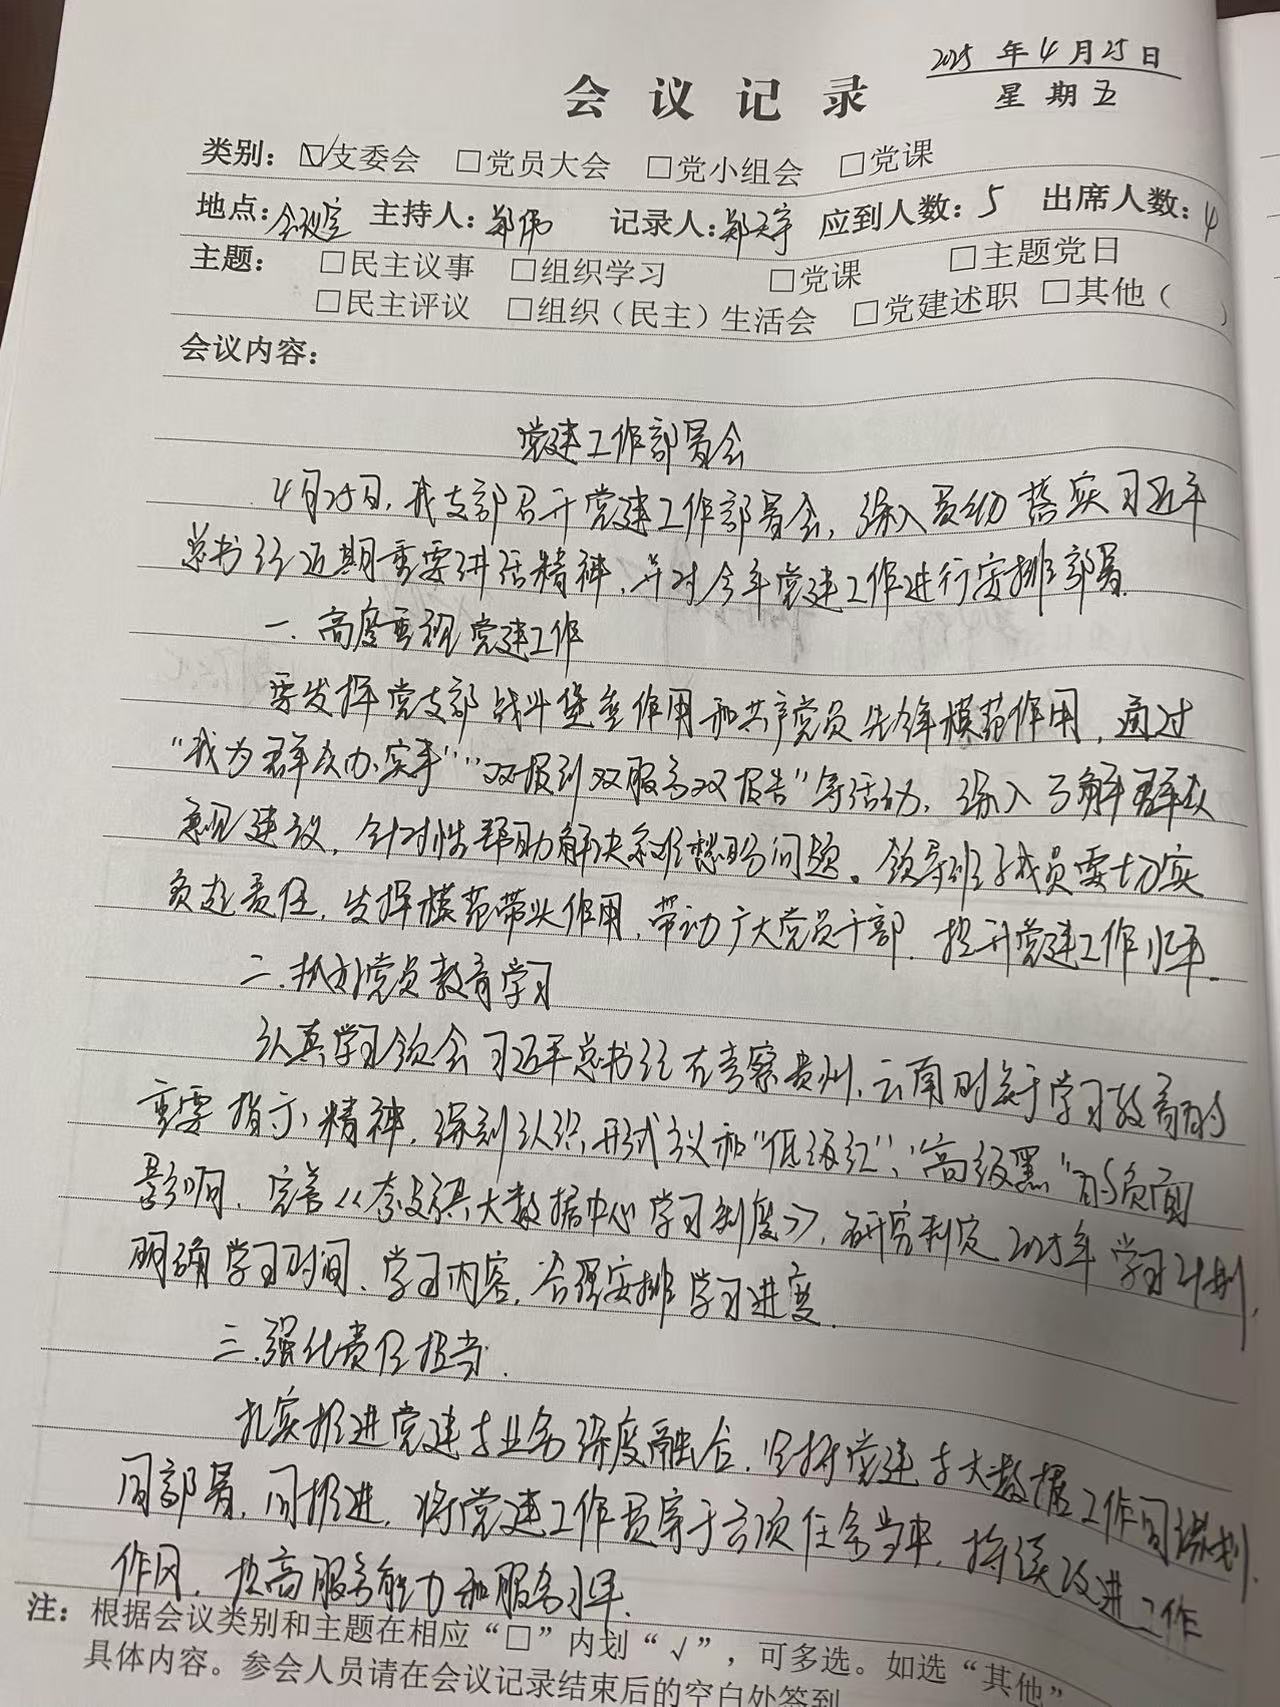 2025 年 4 月 25 日
会议记录
星期五
类别：☑支委会 □党员大会 □党小组会 □党课
地点：会议室 主持人：郑伟 记录人：郑天宇 应到人数：5 出席人数：4
主题： □民主议事 □组织学习 □党课 □主题党日
□民主评议 □组织（民主）生活会 □党建述职 □其他（ ）
会议内容：
党建工作部署会
4月25日，我支部召开党建工作部署会，深入贯彻落实习近平
总书记近期重要讲话精神，并对今年党建工作进行安排部署.
一. 高度重视党建工作
要发挥党支部战斗堡垒作用和共产党员先锋模范作用，通过
“我为群众办实事”“双报到双服务双报告”等活动，深入了解群众
意见建议，针对性帮助解决急难愁盼问题。领导班子成员要切实
负起责任，发挥模范带头作用，带动广大党员干部，提升党建工作水平.
二.抓好党员教育学习
认真学习领会习近平总书记在考察贵州、云南时关于学习教育的
重要指示精神，深刻认识形式主义和“低级红”、“高级黑”的负面
影响，完善《大数据中心学习制度》，研究制定2025年学习计划，
明确学习时间、学习内容，合理安排学习进度.
三.强化责任担当.
扎实推进党建与业务深度融合，坚持党建与大数据工作同谋划.
同部署，同推进，将党建工作贯穿于各项任务当中，持续改进工作
作风，提高服务能力和服务水平.
注：根据会议类别和主题在相应“□”内划“√”，可多选。如选“其他”
具体内容。参会人员请在会议记录结束后的空白处签到